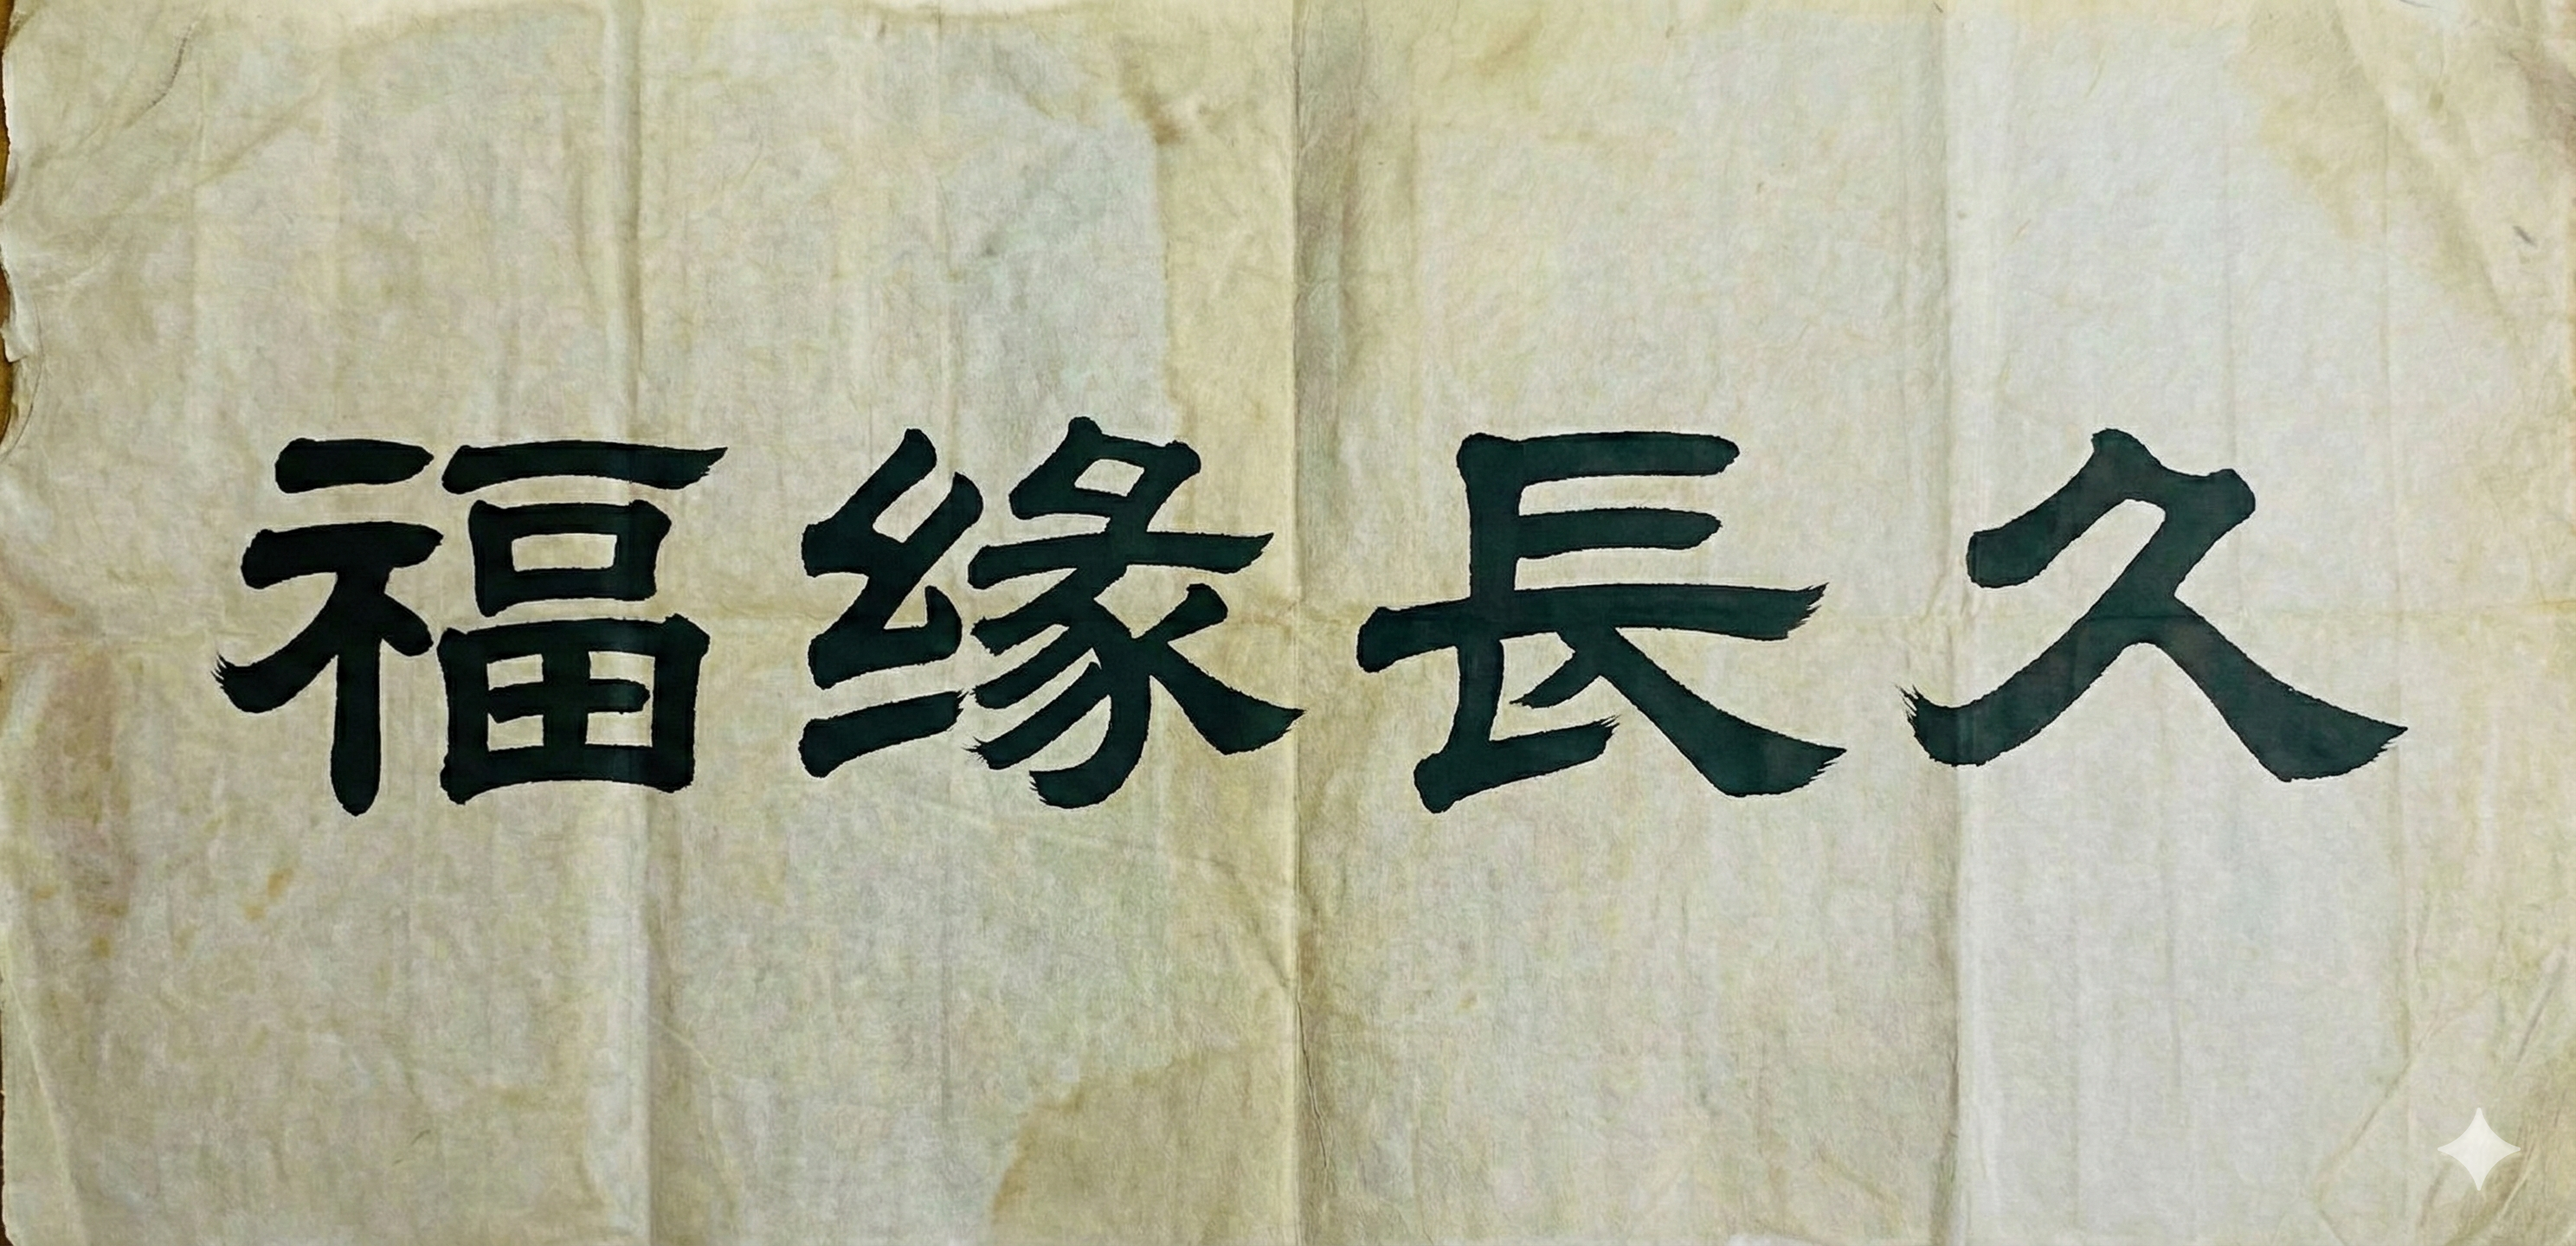 福缘長久